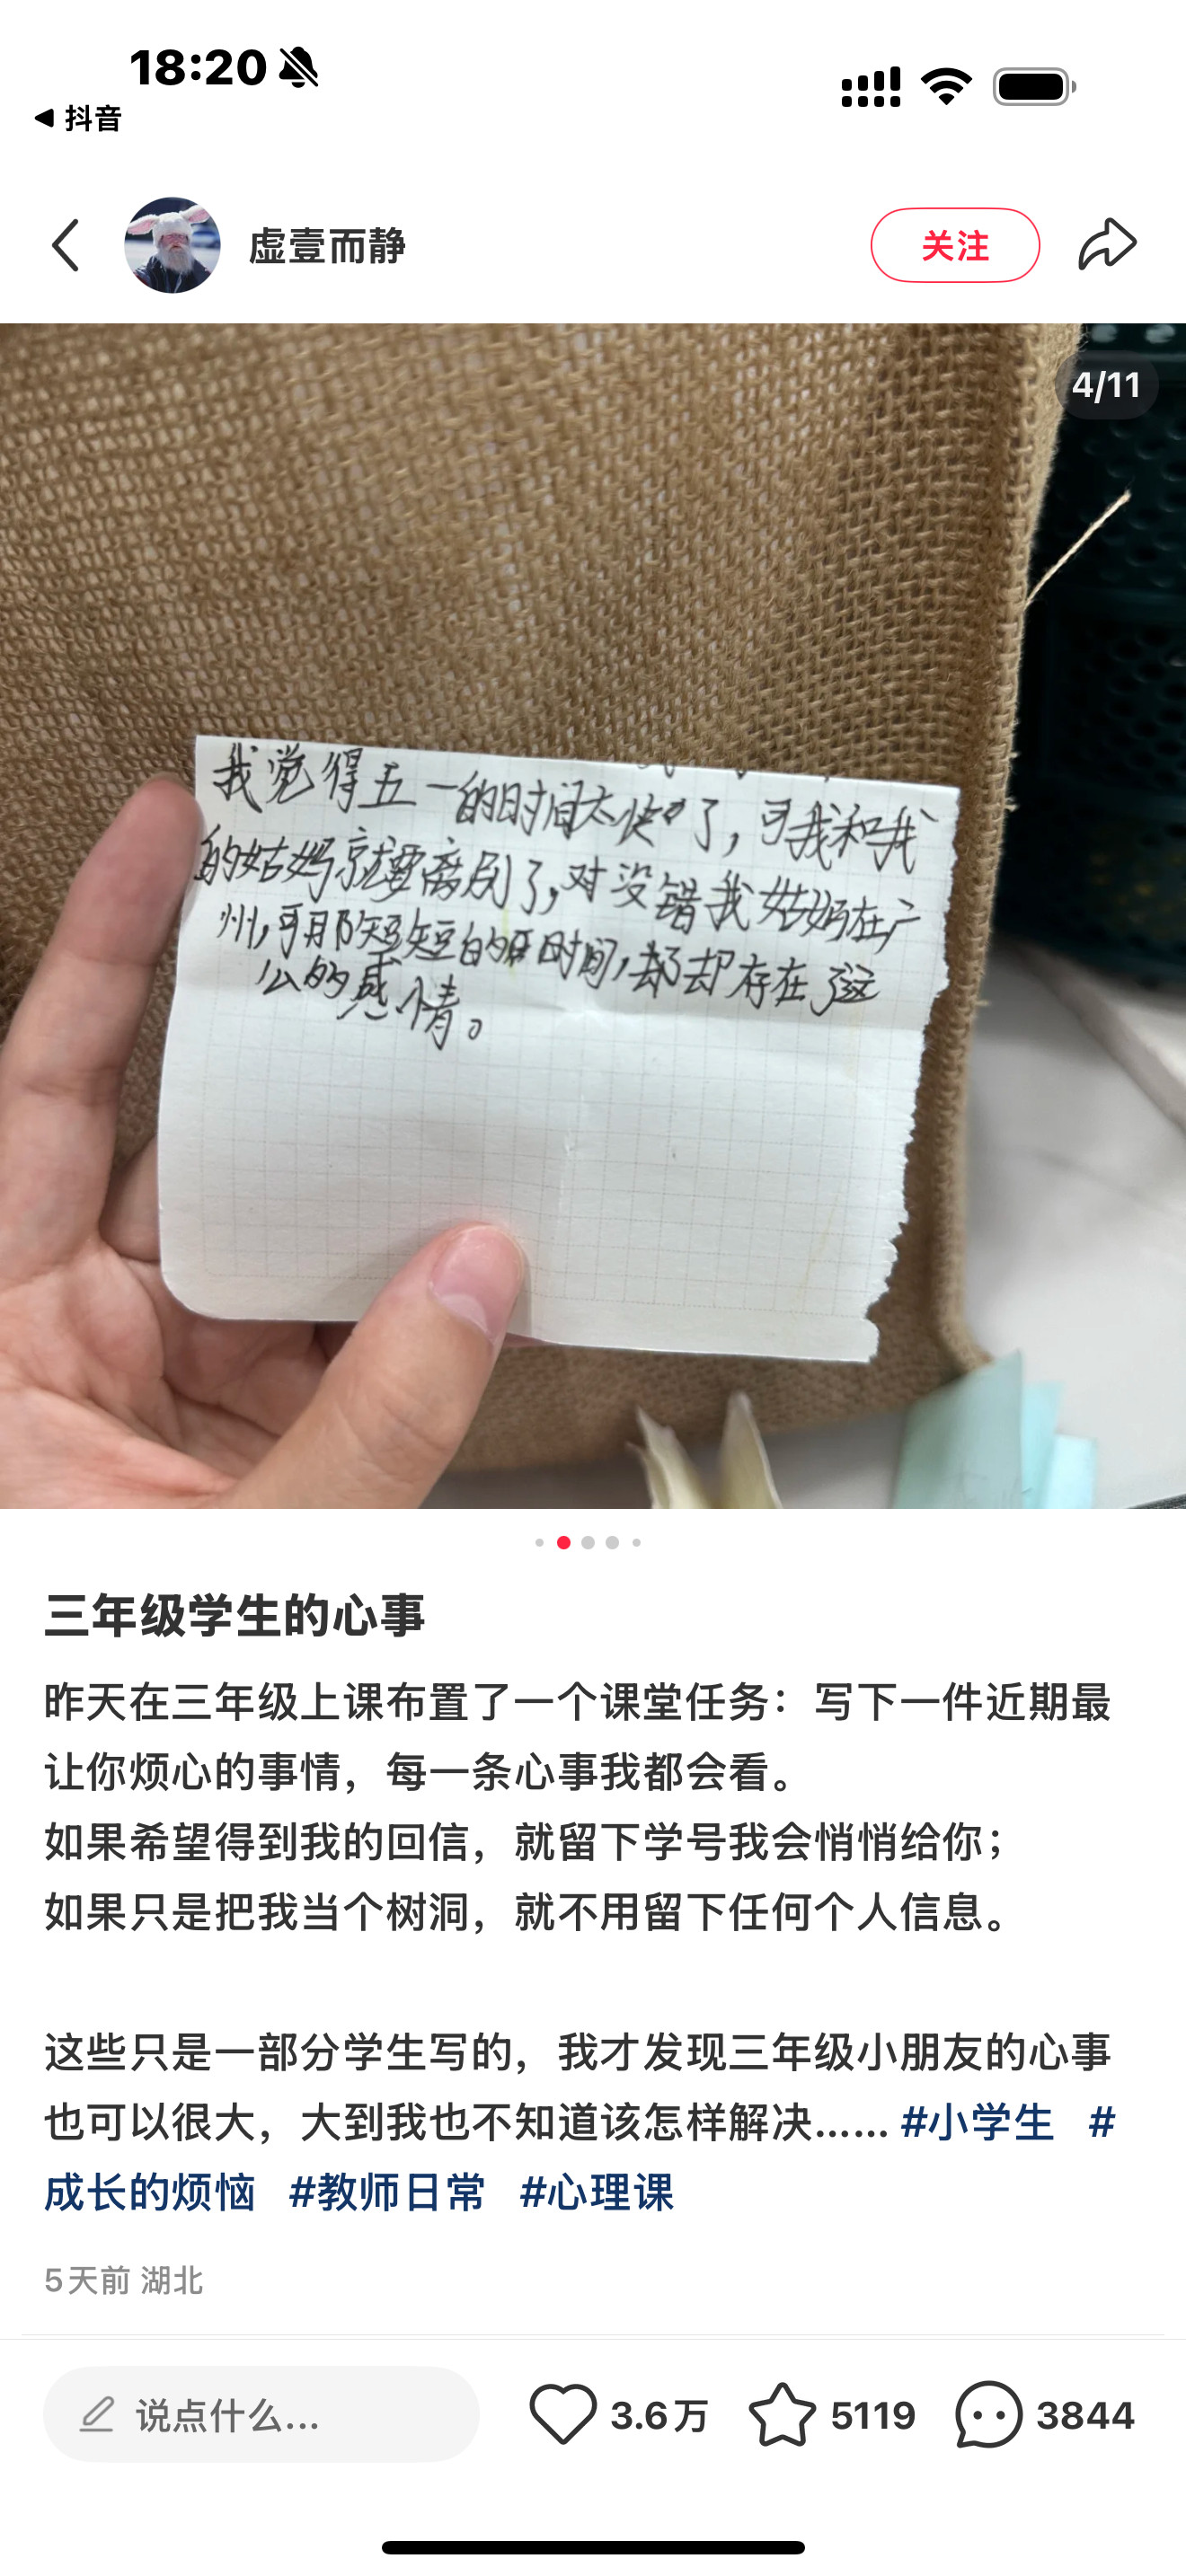 18:20
抖音
虚壹而静
关注
4/11
我觉得五一的时间太快了，可我和我
的姑妈就要离别了，对没错我姑妈在广
州，可那短短的时间，却却存在了这
么的感情。
三年级学生的心事
昨天在三年级上课布置了一个课堂任务：写下一件近期最
让你烦心的事情，每一条心事我都会看。
如果希望得到我的回信，就留下学号我会悄悄给你；
如果只是把我当个树洞，就不用留下任何个人信息。
这些只是一部分学生写的，我才发现三年级小朋友的心事
也可以很大，大到我也不知道该怎样解决…… #小学生 #
成长的烦恼 #教师日常 #心理课
5天前 湖北
说点什么...
3.6万
5119
3844